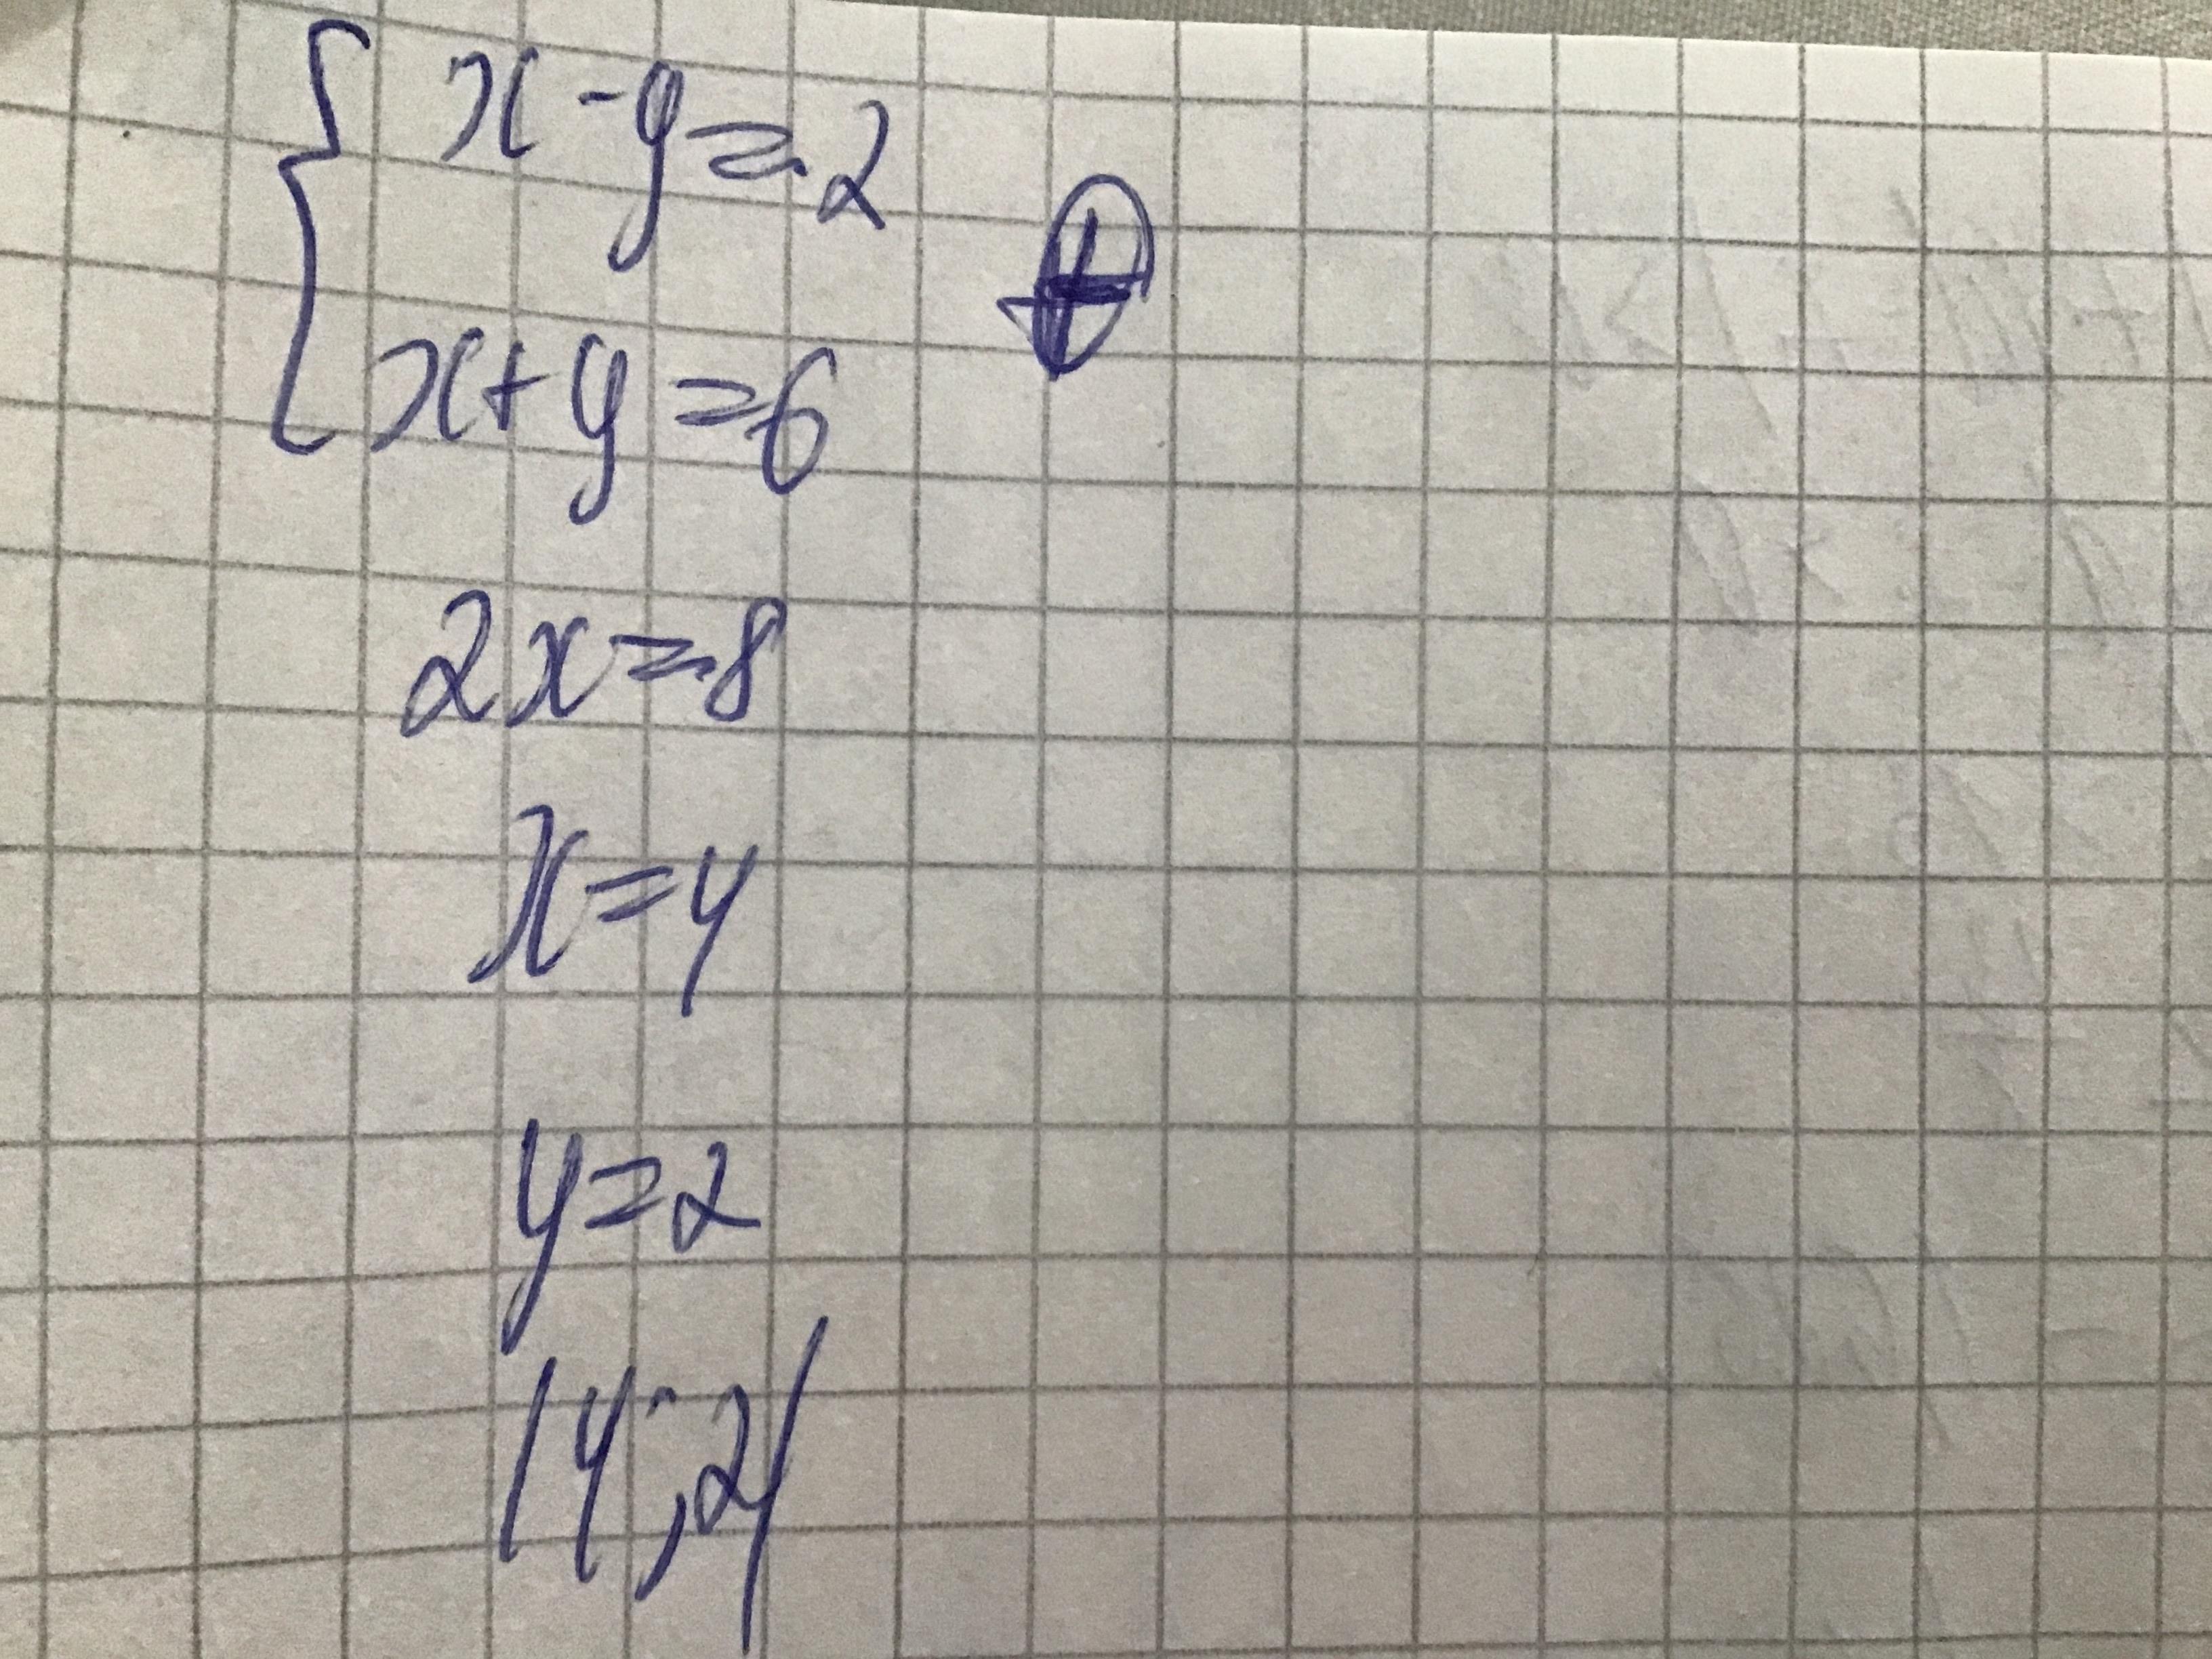 x-y=2
⊕
x+y=6
2x=8
x=4
y=2
(4;2)